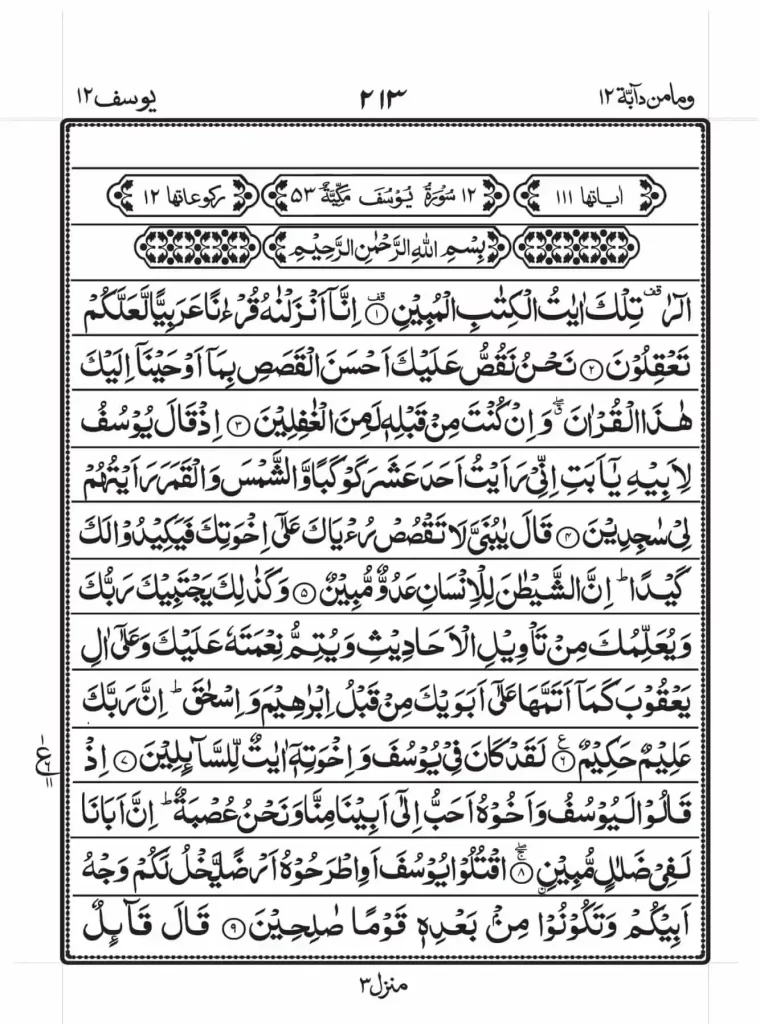 وما من دآبة ١٢ ٢١٣ يوسف ١٢
اياتها ١١١ ١٢ سُوْرَةُ يُوْسُفَ مَكِّيَّةٌ ٥٣ ركوعاتها ١٢
بِسْمِ اللّٰهِ الرَّحْمٰنِ الرَّحِيْمِ
الٓرٰ ۫ تِلْكَ اٰيٰتُ الْكِتٰبِ الْمُبِيْنِ ۝۱ قف اِنَّاۤ اَنْزَلْنٰهُ قُرْءٰنًا عَرَبِيًّا لَّعَلَّكُمْ
تَعْقِلُوْنَ ۝۲ نَحْنُ نَقُصُّ عَلَيْكَ اَحْسَنَ الْقَصَصِ بِمَاۤ اَوْحَيْنَاۤ اِلَيْكَ
هٰذَا الْقُرْاٰنَ ۖ وَاِنْ كُنْتَ مِنْ قَبْلِهٖ لَمِنَ الْغٰفِلِيْنَ ۝۳ اِذْ قَالَ يُوْسُفُ
لِاَبِيْهِ يٰۤاَبَتِ اِنِّيْ رَاَيْتُ اَحَدَ عَشَرَ كَوْكَبًا وَّالشَّمْسَ وَالْقَمَرَ رَاَيْتُهُمْ
لِيْ سٰجِدِيْنَ ۝۴ قَالَ يٰبُنَيَّ لَا تَقْصُصْ رُءْيَاكَ عَلٰۤى اِخْوَتِكَ فَيَكِيْدُوْا لَكَ
كَيْدًا ؕ اِنَّ الشَّيْطٰنَ لِلْاِنْسَانِ عَدُوٌّ مُّبِيْنٌ ۝۵ وَكَذٰلِكَ يَجْتَبِيْكَ رَبُّكَ
وَيُعَلِّمُكَ مِنْ تَاْوِيْلِ الْاَحَادِيْثِ وَيُتِمُّ نِعْمَتَهٗ عَلَيْكَ وَعَلٰۤى اٰلِ
يَعْقُوْبَ كَمَاۤ اَتَمَّهَا عَلٰۤى اَبَوَيْكَ مِنْ قَبْلُ اِبْرٰهِيْمَ وَاِسْحٰقَ ؕ اِنَّ رَبَّكَ
عَلِيْمٌ حَكِيْمٌ ۝۶ ع لَقَدْ كَانَ فِيْ يُوْسُفَ وَاِخْوَتِهٖۤ اٰيٰتٌ لِّلسَّآئِلِيْنَ ۝۷ اِذْ
قَالُوْا لَيُوْسُفُ وَاَخُوْهُ اَحَبُّ اِلٰۤى اَبِيْنَا مِنَّا وَنَحْنُ عُصْبَةٌ ؕ اِنَّ اَبَانَا
لَفِيْ ضَلٰلٍ مُّبِيْنِ ۝۸ اقْتُلُوْا يُوْسُفَ اَوِ اطْرَحُوْهُ اَرْضًا يَّخْلُ لَكُمْ وَجْهُ
اَبِيْكُمْ وَتَكُوْنُوْا مِنْۢ بَعْدِهٖ قَوْمًا صٰلِحِيْنَ ۝۹ قَالَ قَآئِلٌ
منزل ٣